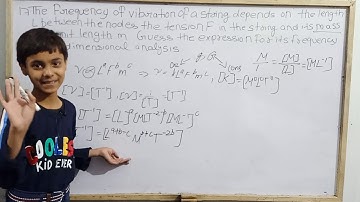 The Frequency of vibration of a string depends on the length
L between the nodes the tension F in the string and its mass
unit length m Guess the expression for its frequency
dimensional analysis
M/L = [M]/[L] = [ML⁻¹]
[K] = [M⁰L⁰T⁰]
[ν] = [T⁻¹]
[T⁻¹] = [L]ᵃ [MLT⁻²]ᵇ [ML⁻¹]ᶜ
[L^{a+b-c} M^{b+c} T^{-2b}]
COOLEST
KID EVER